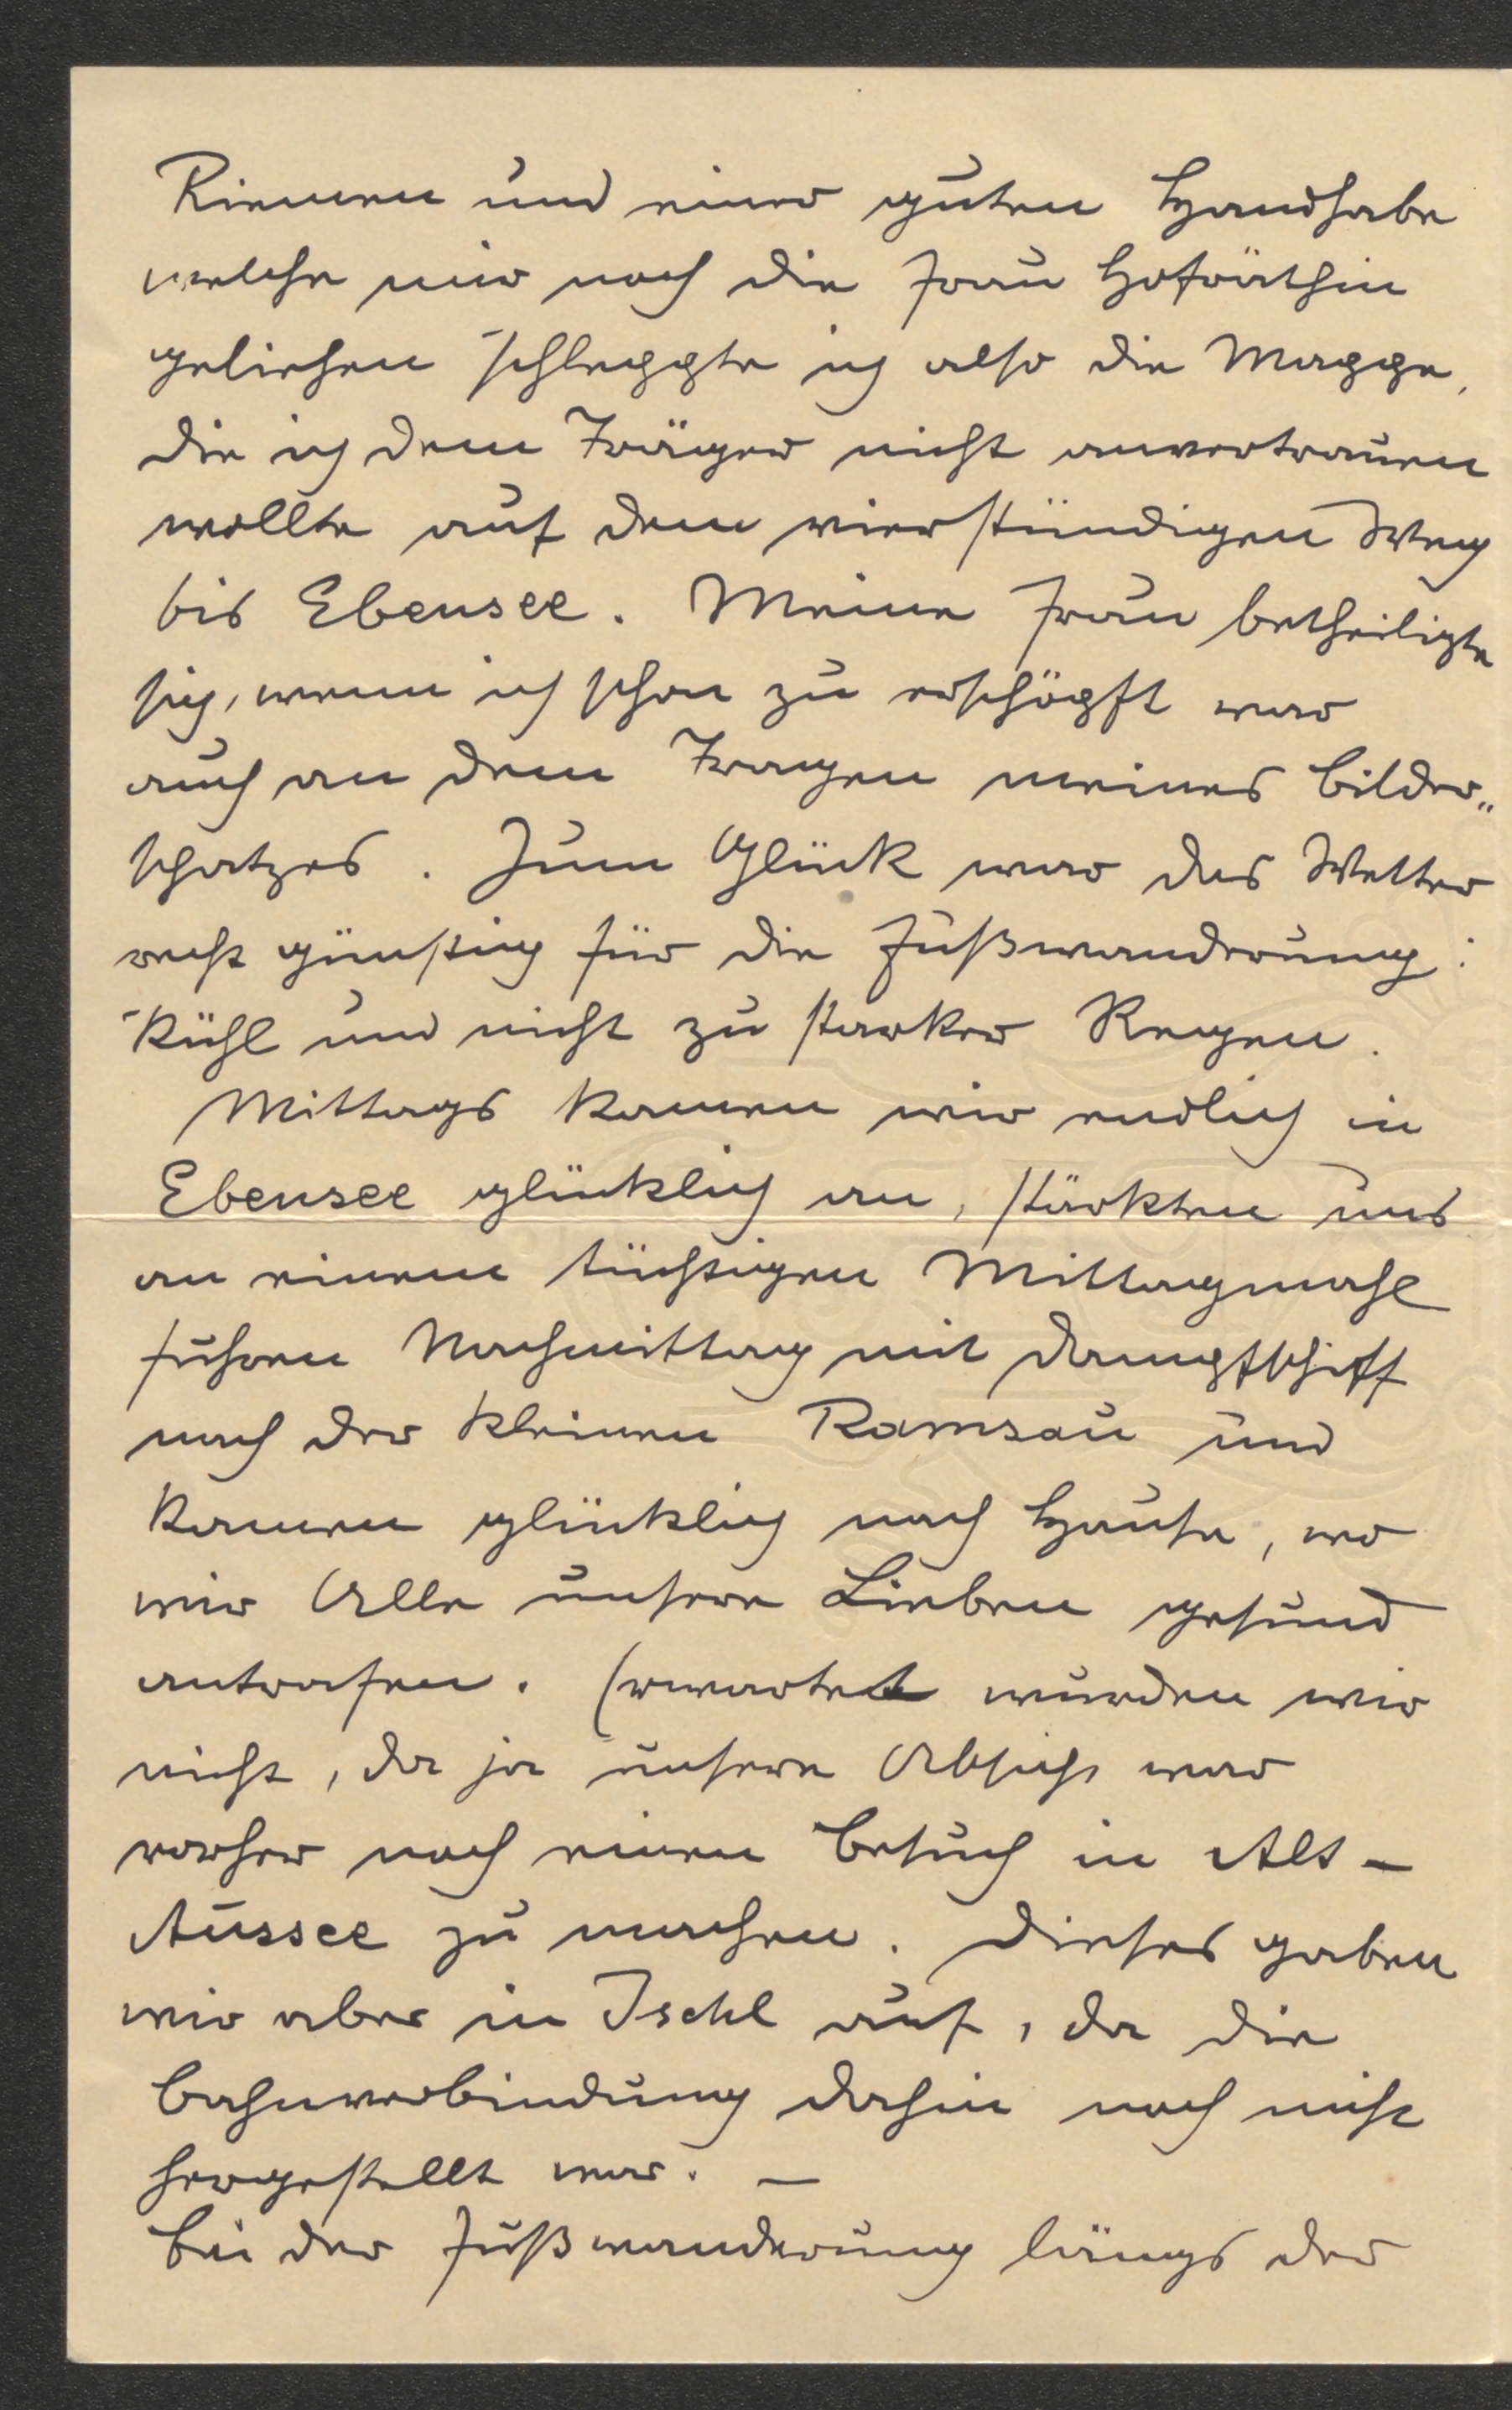 Riemen und einer guten Handhabe
welche mir noch die Frau Hofräthin
geliehen schleppte ich also die Mappe,
die ich dem Träger nicht anvertrauen
wollte auf dem vierstündigen Weg
bis Ebensee. Meine Frau betheiligte
sich, wenn ich schon zu erschöpft war
auch an dem Tragen meines Bilder„
schatzes. Zum Glück war das Wetter
recht günstig für die Fußwanderung:
Kühl und nicht zu starker Regen.
Mittags kamen wir endlich in
Ebensee glücklich an, stärkten uns
an einem tüchtigen Mittagmahl
fuhren Nachmittag mit Dampfschiff
nach der kleinen Ramsau und
kamen glücklich nach Hause, wo
wir Alle unsere Lieben gesund
antrafen. Erwartet wurden wir
nicht, da ja unsere Absicht war
vorher noch einen Besuch in Alt-
Aussee zu machen. Dieses gaben
wir aber in Ischl auf, da die
Bahnverbindung dahin noch nicht
hergestellt war. —
Bei der Fußwanderung längs der